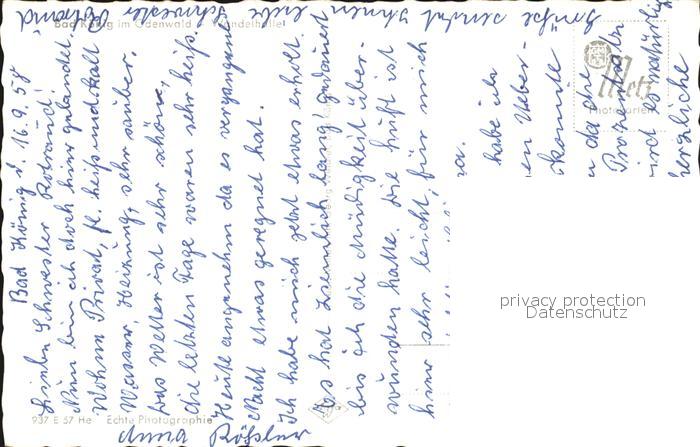 Bad König im Odenwald · Wandelhalle
Bad König d. 16.9.58
Liebe Schwester Rotraud!
Nun bin ich doch hier gelandet.
Wohne Privat, fl. heiß und kalt
Wasser, Heizung, sehr sauber.
Das Wetter ist sehr schön,
die letzten Tage waren sehr heiß.
Heute angenehm da es vergangene
Nacht etwas geregnet hat.
Ich habe mich jetzt etwas erholt.
Es hat ziemlich lang gedauert
bis ich die Müdigkeit über-
wunden hatte. Die Luft ist
hier sehr leicht, für mich
habe ich
en Ueber-
konnte
da die
Prozente
wird es natürlich
herzliche
Grüße sendet Ihnen liebe Schwester Rotraud
Rößler
Metz
privacy protection
Datenschutz
937 E 57 He Echte Photographie